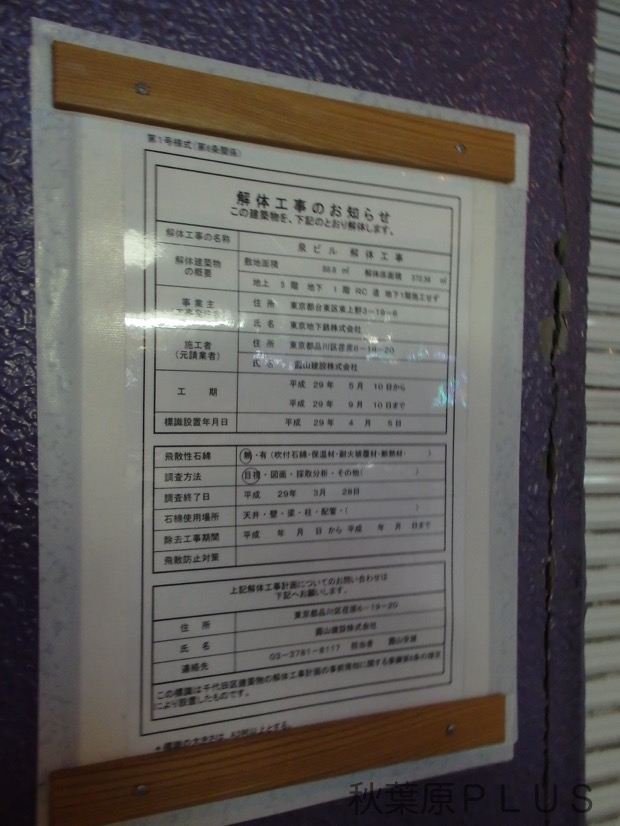 第1号様式(第6条関係)
解体工事のお知らせ
この建築物を、下記のとおり解体します。
解体工事の名称 泉ビル 解体工事
解体建築物の概要 敷地面積 ㎡ 解体床面積 ㎡
地上 5階 地下 1階 RC 造 地下1階施工せず
事業主 住所 東京都台東区東上野3-19-6
氏名 東京地下鉄株式会社
施工者(元請業者) 住所 東京都品川区荏原6-19-20
氏名 圓山建設株式会社
工期 平成 29年 5月 10日から
平成 29年 9月 10日まで
標識設置年月日 平成 29年 4月 5日
飛散性石綿 無・有(吹付石綿・保温材・耐火被覆材・断熱材・ )
調査方法 目視・図面・採取分析・その他( )
調査終了日 平成 29年 3月 28日
石綿使用場所 天井・壁・梁・柱・配管・( )
除去工事期間 平成 年 月 日 から 平成 年 月 日まで
飛散防止対策
上記解体工事計画についてのお問い合わせは
下記へお願いします。
住所 東京都品川区荏原6-19-20
氏名 圓山建設株式会社
連絡先 03-3781-8117 担当者
この標識は千代田区建築物の解体工事計画の事前周知に関する要綱第6条の規定
により設置したものです。
*標識の大きさは、A3判以上とする。
秋葉原PLUS